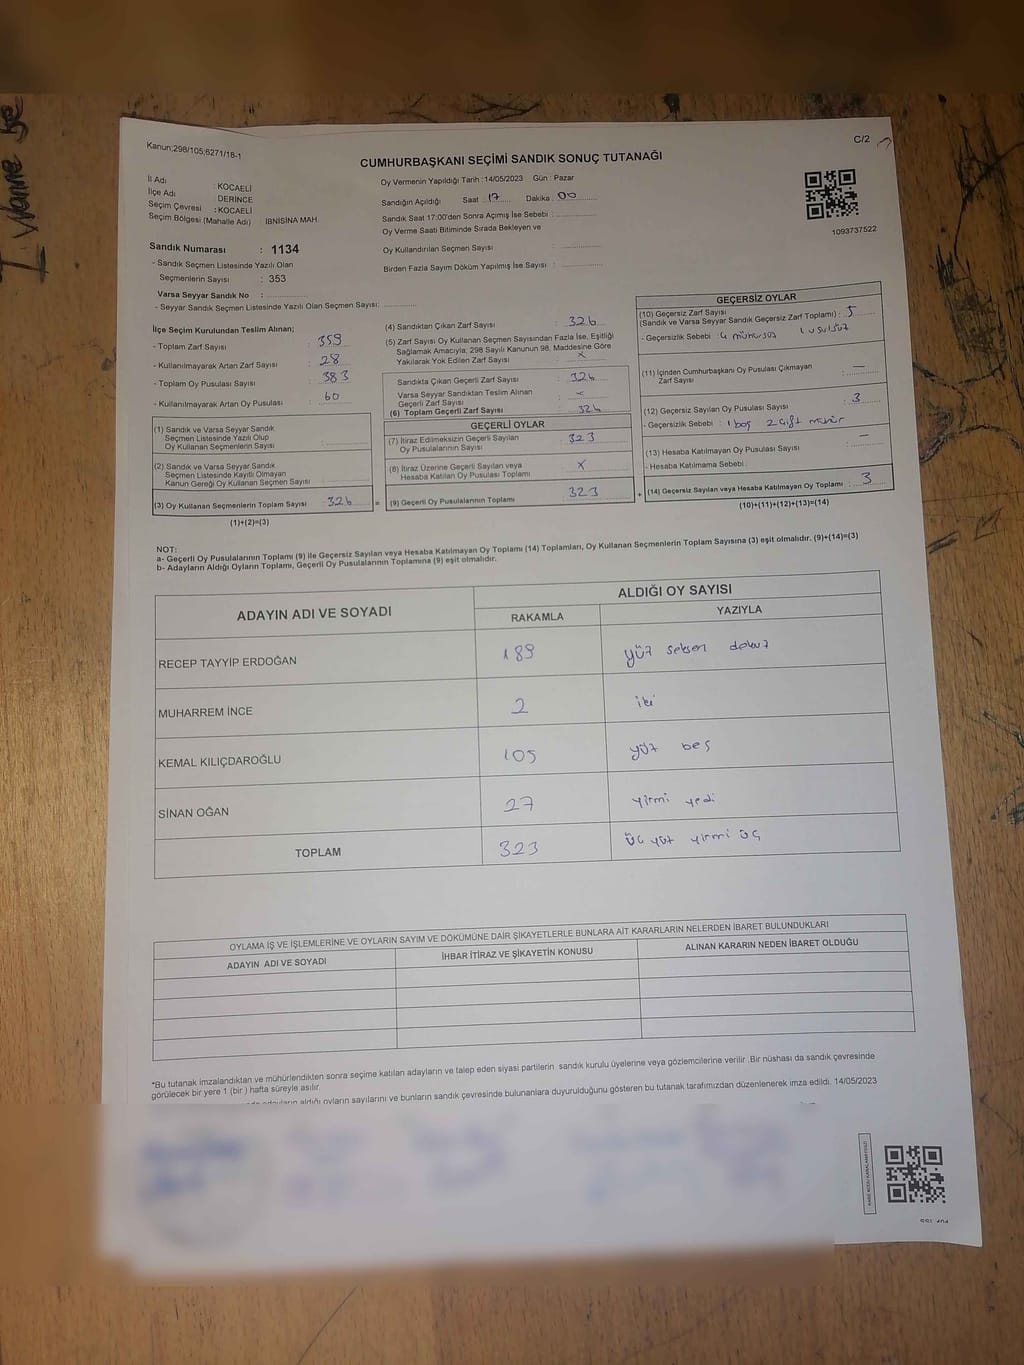 I wanne be
Kanun;298/105;6271/18-1
C/2
CUMHURBAŞKANI SEÇİMİ SANDIK SONUÇ TUTANAĞI
İl Adı : KOCAELİ
İlçe Adı : DERİNCE
Seçim Çevresi : KOCAELİ
Seçim Bölgesi (Mahalle Adı) : IBNİSİNA MAH.
Sandık Numarası : 1134
- Sandık Seçmen Listesinde Yazılı Olan
Seçmenlerin Sayısı : 353
Varsa Seyyar Sandık No :
- Seyyar Sandık Seçmen Listesinde Yazılı Olan Seçmen Sayısı:
Oy Vermenin Yapıldığı Tarih :14/05/2023 Gün : Pazar
Sandığın Açıldığı Saat : 17 Dakika : 00
Sandık Saat 17:00'den Sonra Açımış İse Sebebi :
Oy Verme Saati Bitiminde Sırada Bekleyen ve
Oy Kullandırılan Seçmen Sayısı :
Birden Fazla Sayım Döküm Yapılmış İse Sayısı :
1093737522
İlçe Seçim Kurulundan Teslim Alınan;
- Toplam Zarf Sayısı : 359
- Kullanılmayarak Artan Zarf Sayısı : 28
- Toplam Oy Pusulası Sayısı : 383
- Kullanılmayarak Artan Oy Pusulası : 60
(1) Sandık ve Varsa Seyyar Sandık
Seçmen Listesinde Yazılı Olup
Oy Kullanan Seçmenlerin Sayısı :
(2) Sandık ve Varsa Seyyar Sandık
Seçmen Listesinde Kayıtlı Olmayan
Kanun Gereği Oy Kullanan Seçmen Sayısı :
(3) Oy Kullanan Seçmenlerin Toplam Sayısı : 326 =
(1)+(2)=(3)
(4) Sandıktan Çıkan Zarf Sayısı : 326
(5) Zarf Sayısı Oy Kullanan Seçmen Sayısından Fazla İse, Eşitliği
Sağlamak Amacıyla; 298 Sayılı Kanunun 98. Maddesine Göre
Yakılarak Yok Edilen Zarf Sayısı : X
Sandıkta Çıkan Geçerli Zarf Sayısı : 326
Varsa Seyyar Sandıktan Teslim Alınan
Geçerli Zarf Sayısı : X
(6) Toplam Geçerli Zarf Sayısı : 326
GEÇERLİ OYLAR
(7) İtiraz Edilmeksizin Geçerli Sayılan
Oy Pusulalarının Sayısı : 323
(8) İtiraz Üzerine Geçerli Sayılan veya
Hesaba Katılan Oy Pusulası Toplamı : X
(9) Geçerli Oy Pusulalarının Toplamı : 323 +
GEÇERSİZ OYLAR
(10) Geçersiz Zarf Sayısı
(Sandık ve Varsa Seyyar Sandık Geçersiz Zarf Toplamı) : 5
- Geçersizlik Sebebi : 4 mühürsüz 1 usulsüz
(11) İçinden Cumhurbaşkanı Oy Pusulası Çıkmayan
Zarf Sayısı : —
(12) Geçersiz Sayılan Oy Pusulası Sayısı : 3
- Geçersizlik Sebebi : 1 boş 2 çift mühür
(13) Hesaba Katılmayan Oy Pusulası Sayısı : —
- Hesaba Katılmama Sebebi :
(14) Geçersiz Sayılan veya Hesaba Katılmayan Oy Toplamı : 3
(10)+(11)+(12)+(13)=(14)
NOT:
a- Geçerli Oy Pusulalarının Toplamı (9) ile Geçersiz Sayılan veya Hesaba Katılmayan Oy Toplamı (14) Toplamları, Oy Kullanan Seçmenlerin Toplam Sayısına (3) eşit olmalıdır. (9)+(14)=(3)
b- Adayların Aldığı Oyların Toplamı, Geçerli Oy Pusulalarının Toplamına (9) eşit olmalıdır.
ADAYIN ADI VE SOYADI ALDIĞI OY SAYISI
RAKAMLA YAZIYLA
RECEP TAYYİP ERDOĞAN 189 yüz seksen dokuz
MUHARREM İNCE 2 iki
KEMAL KILIÇDAROĞLU 105 yüz beş
SİNAN OĞAN 27 yirmi yedi
TOPLAM 323 üç yüz yirmi üç
OYLAMA İŞ VE İŞLEMLERİNE VE OYLARIN SAYIM VE DÖKÜMÜNE DAİR ŞİKAYETLERLE BUNLARA AİT KARARLARIN NELERDEN İBARET BULUNDUKLARI
ADAYIN ADI VE SOYADI İHBAR İTİRAZ VE ŞİKAYETİN KONUSU ALINAN KARARIN NEDEN İBARET OLDUĞU
*Bu tutanak imzalandıktan ve mühürlendikten sonra seçime katılan adayların ve talep eden siyasi partilerin sandık kurulu üyelerine veya gözlemcilerine verilir .Bir nüshası da sandık çevresinde
görülecek bir yere 1 (bir ) hafta süreyle asılır.
adayların aldığı oyların sayılarını ve bunların sandık çevresinde bulunanlara duyurulduğunu gösteren bu tutanak tarafımızdan düzenlenerek imza edildi. 14/05/2023